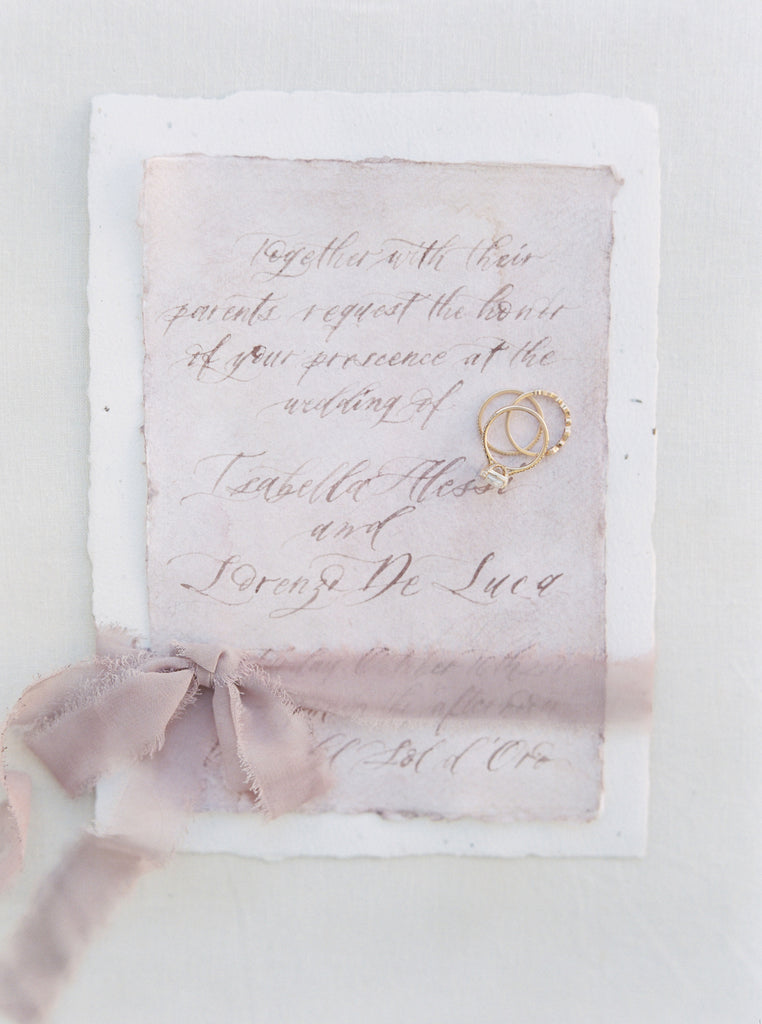 Together with their
parents request the honor
of your prescence at the
wedding of
Isabella Alessi
and
Lorenzo De Luca
October
in the afternoon
Sol d'Oro